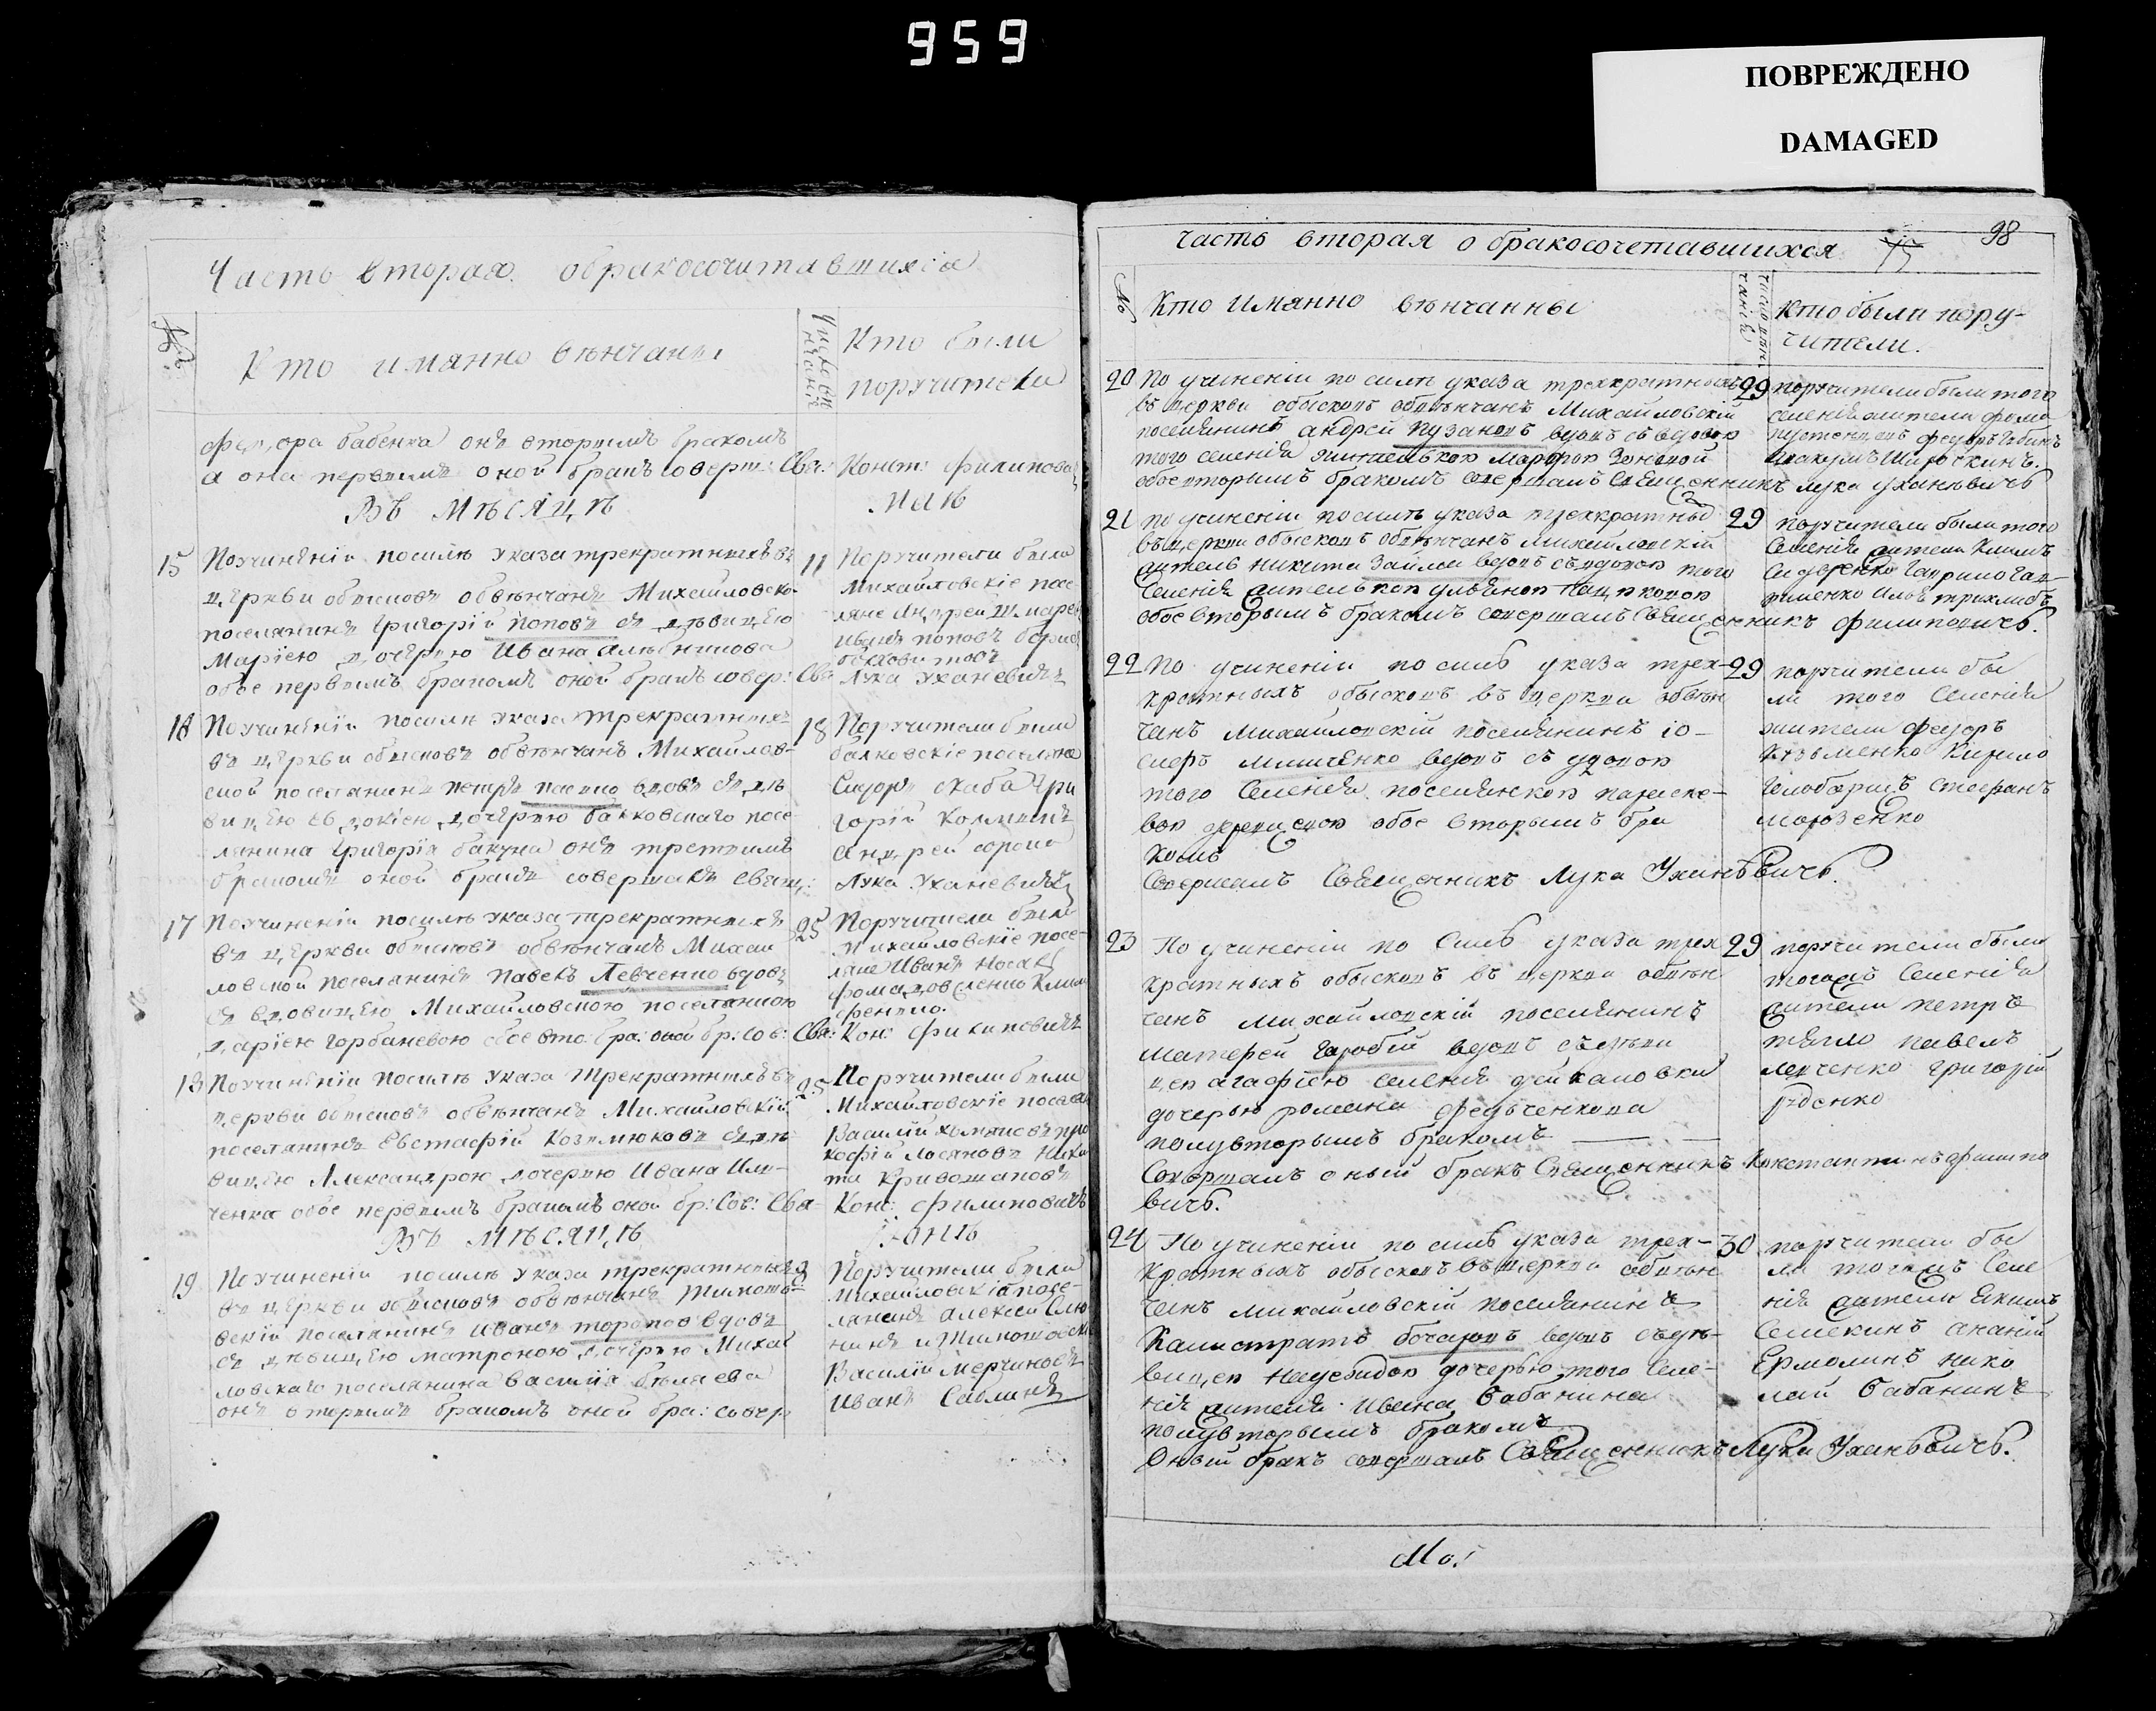 959
ПОВРЕЖДЕНО
DAMAGED
Часть вторая о бракосочитавшихся
№
Кто имянно венчаны
Число вѣнчанія
Кто были
поручители
Федора бабенка онъ вторымъ бракомъ
а она первымъ оной бракъ соверш: Свя: Конст: Филипова
Въ Мѣсяцѣ Маіѣ
15 Поучинѣніи посилѣ указа трекратныхъ въ
церкви обысковъ обвѣнчанъ Михайловско
поселянинъ Григорій Поповъ съ дѣвицею
Маріею дочерью Ивана
обое первымъ бракомъ оной бракъ совер: Свя
11 Поручители были
Михайловские посе
ляне Андрей
Иванъ Поповъ
Лука Уханевичъ
16 Поучинѣніи посилѣ указа трекратныхъ
въ церкви обысковъ обвѣнчанъ Михайлов-
ской поселянинъ Петръ вдовъ съ дѣ
вицею Евдокіею дочерью балковскаго посе
лянина Григорія бакуна онъ третьимъ
бракомъ оной бракъ совершалъ Свящ:
18 Поручители были
балковскіе поселяне
Сидоръ скиба Гри
горій
Андрей сорока
Лука Уханевичъ
17 Поучинѣніи посилѣ указа трекратныхъ
въ церкви обысковъ обвѣнчанъ Михай
ловской поселянинъ Павелъ Левченко вдовъ
съ вдовицею Михайловскою поселянкою
Дарією Горбаневою обое вто: бра: оной бр: сов: Свя:
25 Поручители были
Михайловскіе посе-
ляне Иванъ Носакъ
Фома
Кон: Филиповичъ
18 Поучинѣніи посилѣ указа трекратныхъ въ
церкви обысковъ обвѣнчанъ Михайловскій
поселянинъ Евстафій Козюмюковъ съ дѣ
вицею Александрою дочерью Ивана Иль-
ченка обое первымъ бракомъ оной бр: сов: Свя
25 Поручители были
Михайловскіе поселя
Василій про
кофій Ники
та Кривошаповъ
Конс: Филиповичъ
Въ мѣсяцѣ Іюнѣ
19 Поучинѣніи посилѣ указа трекратныхъ
въ церкви обысковъ обвѣнчанъ Тимошо-
вскій поселянинъ Иванъ тороповъ вдовъ
съ дѣвицею матроною дочерью Михай
ловскаго поселянина Василія бѣляева
онъ вторымъ бракомъ оной бра: совер
Поручители были
Михайловскіе посе-
ляне Алексей
нинъ и Тимошовск
Василій Мерчиновъ
Иванъ Саблинъ
часть вторая о бракосочетавшихся 75 98
№
Кто имянно вѣнчанны
число вѣнчанія
кто были пору-
чители.
20 По учиненіи по силѣ указа трехкратныхъ
въ церкви обысковъ обвѣнчанъ Михайловскій
поселянинъ андрей Пузановъ вдовъ съ вдовою
того селенія жителькою Марфою
обое вторымъ бракомъ совершалъ Священникъ лука уханѣвичь
29 поручители были того
селенія жители фома
федоръ бабинъ
21 по учиненіи по силѣ указа трехкратныхъ
въ церкви обысковъ обвѣнчанъ Михайловскій
житель никита Займа вдовъ съ вдовою того
Селенія жителькою ульяною
обое вторымъ бракомъ совершалъ Священникъ филиповичь.
29 поручители были того
Селенія жители Климъ
Сидоренко Гаврило Гав-
риленко
22 По учиненіи по силѣ указа трех-
кратныхъ обысковъ въ церкви обвѣн
чанъ Михайловскій поселянинъ іо-
сифъ Мищенко вдовъ съ вдовою
того Селенія поселянкою параске-
вою обое вторымъ бра
комъ
Совершалъ Священникъ Лука Уханѣвичь.
29 поручители бы
ли того Селенія
жители федоръ
Кузьменко Кирило
Стефанъ
морозенко
23 По учиненіи по силѣ указа трех
кратныхъ обысковъ въ церкви обвѣн
чанъ Михайловскій поселянинъ
Матфей Горобій вдовъ съ дѣви
цею агафією селенія
дочерью романа федьченкова
полувторымъ бракомъ
Совершалъ оный бракъ Священникъ Константинъ филипо
вичь.
29 поручители были
тогожъ Селенія
жители петръ
тягло павелъ
левченко григорій
рденко
24 По учиненіи по силѣ указа трех-
кратныхъ обысковъ въ церкви обвѣн
чанъ Михайловскій поселянинъ
Калистратъ бочаровъ вдовъ съ дѣ-
вицею дочерью того Селе-
нія жителя Ивана бабанина
полувторымъ бракомъ
Оный бракъ совершалъ Священникъ Лука Уханѣвичь.
30 поручители бы
ли тогожъ Селе
нія жители Екимъ
Семекинъ ананій
Ермолинъ нико
лай бабанинъ